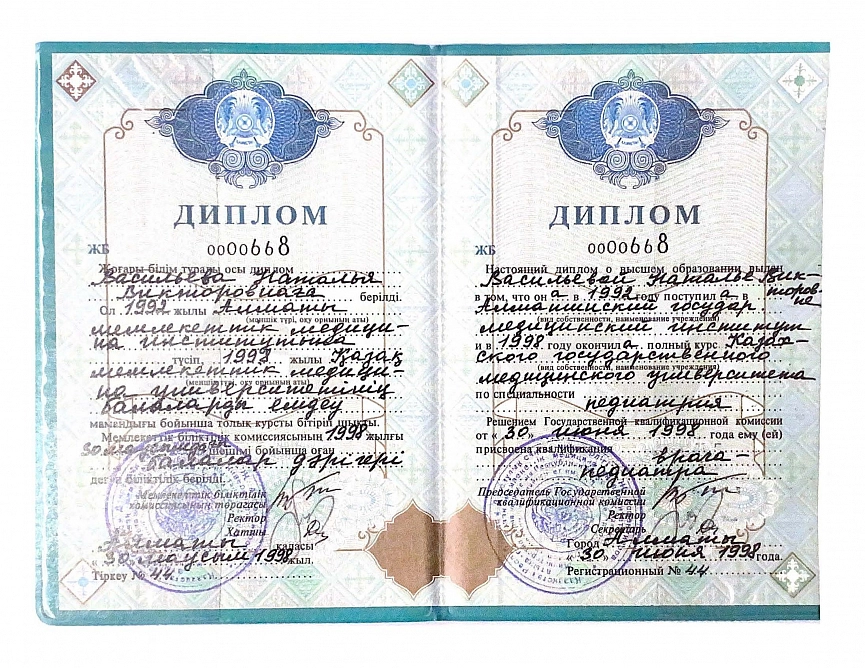 ДИПЛОМ
ЖБ 0000668
Жоғары білім туралы осы диплом
Васильева Наталья
Викторовнаға берілді.
Ол 1992 жылы Алматы
(меншік түрі, оқу орнының аты)
мемлекеттік медици-
на институтына
түсіп, 1998 жылы Қазақ
мемлекеттік медици-
(меншік түрі, оқу орнының аты)
на университетінің
балаларды емдеу
мамандығы бойынша толық курсты бітіріп шықты.
Мемлекеттік біліктілік комиссиясының 1998 жылғы
30 шешімі бойынша оған
балалар дәрігері
деген біліктілік берілді.
Мемлекеттік біліктілік
комиссиясының төрағасы
Ректор
Хатшы
Алматы қаласы
« 30 » маусым 1998 жыл.
Тіркеу № 44
ДИПЛОМ
ЖБ 0000668
Настоящий диплом о высшем образовании выдан
Васильевой Наталье Вик-
торовне
в том, что она в 1992 году поступила в
Алматинский государ
(вид собственности, наименование учреждения)
медицинский институт
и в 1998 году окончила полный курс Казах-
ского государственного
(вид собственности, наименование учреждения)
медицинского университета
по специальности
педиатрия
Решением Государственной квалификационной комиссии
от « 30 » июня 1998 года ему (ей)
присвоена квалификация
врача-
педиатра
Председатель Государственной
квалификационной комиссии
Ректор
Секретарь
Город Алматы
« 30 » июня 1998 года.
Регистрационный № 44